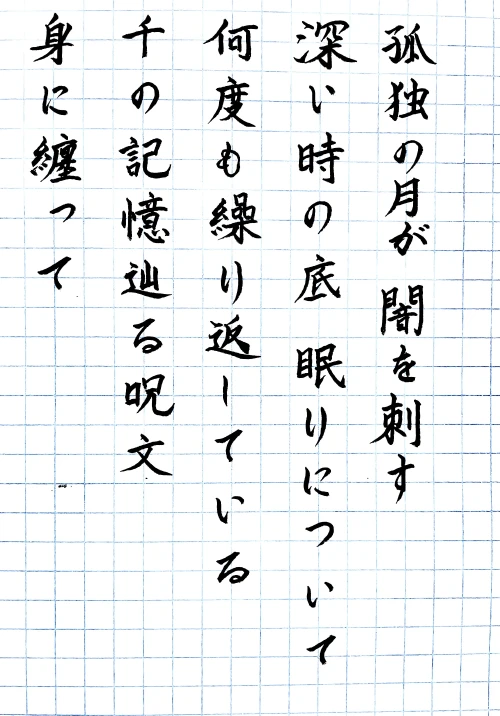 孤独の月が 闇を刺す
深い時の底 眠りについて
何度も繰り返している
千の記憶辿る呪文
身に纏って